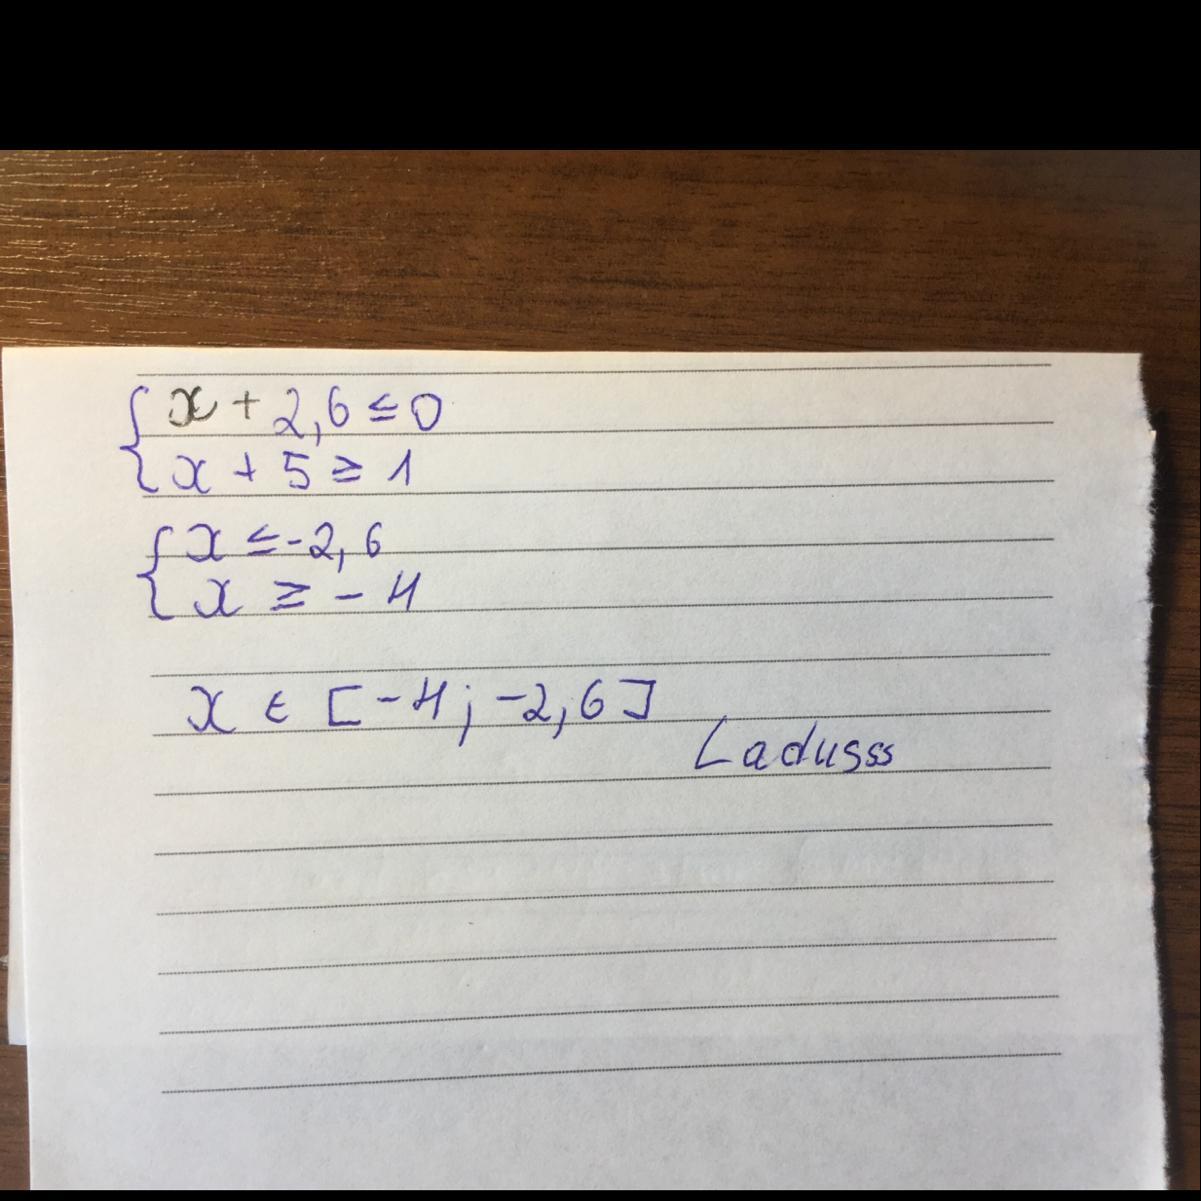 { x + 2,6 ≤ 0
{ x + 5 ≥ 1
{ x ≤ -2,6
{ x ≥ -4
x ∈ [-4; -2,6]
Ladusss